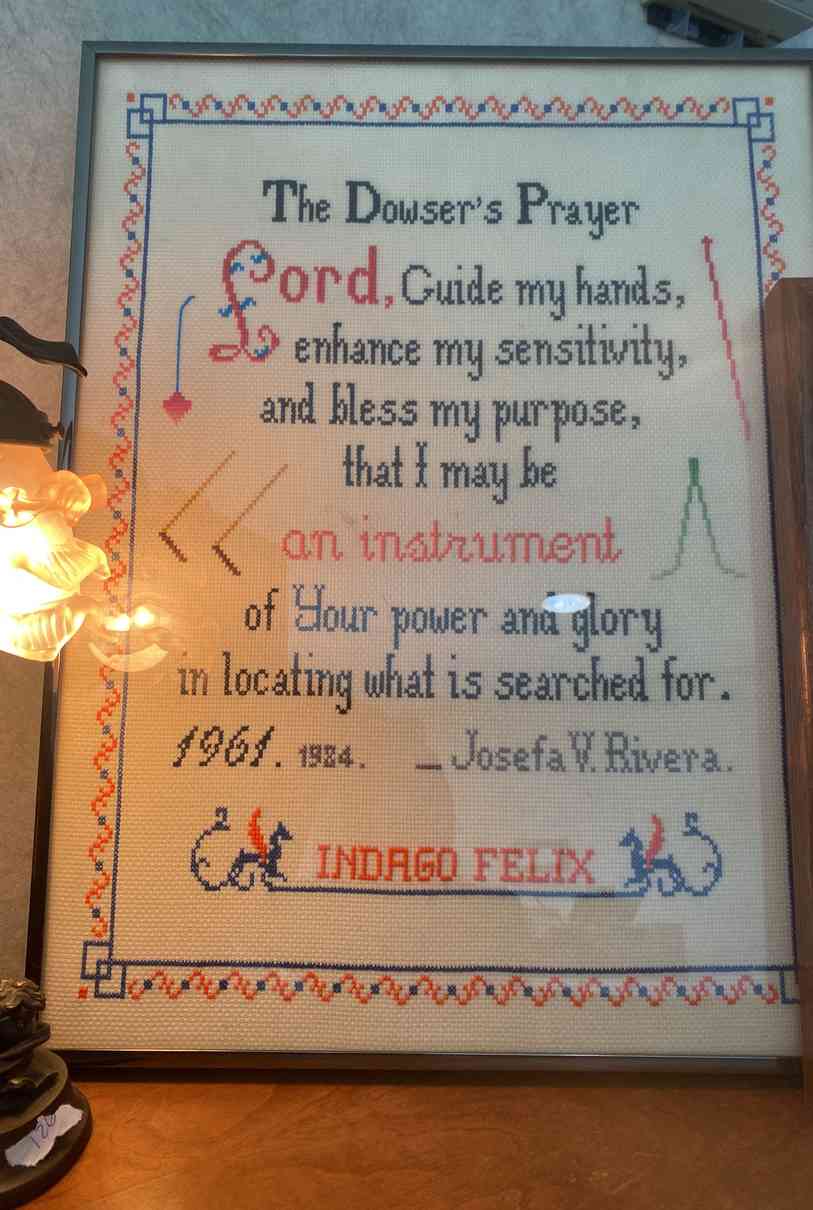 The Dowser's Prayer
Lord, Guide my hands,
enhance my sensitivity,
and bless my purpose,
that I may be
an instrument
of Your power and glory
in locating what is searched for.
1961. 1984. — Josefa V. Rivera.
INDAGO FELIX
126